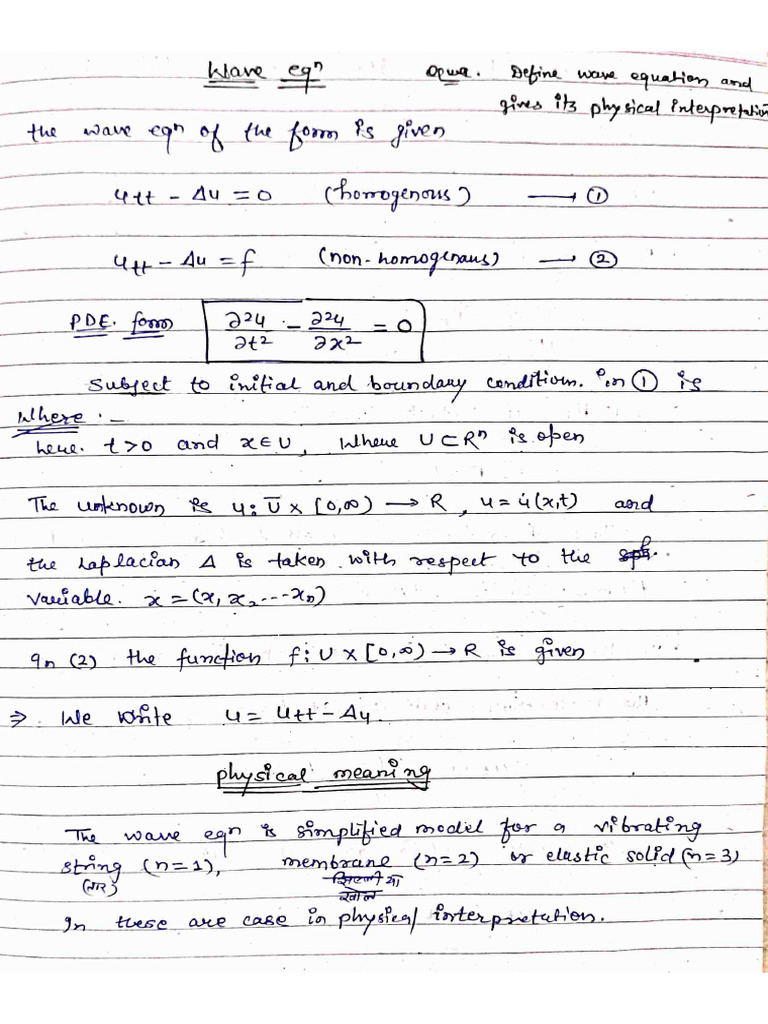 Wave eqⁿ
Define wave equation and
gives its physical interpretation
the wave eqⁿ of the form is given
utt - Δu = 0 (homogenous) → ①
utt - Δu = f (non-homogenous) → ②
PDE. form ∂²u/∂t² - ∂²u/∂x² = 0
subject to initial and boundary condition. in ① is
Where :-
here. t>0 and x∈U, where U⊂Rⁿ is open
The unknown is u: Ū × [0,∞) → R, u = u(x,t) and
the Laplacian Δ is taken with respect to the
variable. x = (x, x₂ ... xn)
In (2) the function f: U × [0,∞) → R is given
⇒ We write u = utt - Δu.
physical meaning
The wave eqⁿ is simplified model for a vibrating
string (n=1), membrane (n=2) or elastic solid (n=3)
(तार) झिल्ली या
खोल
In these are case in physical interpretation.